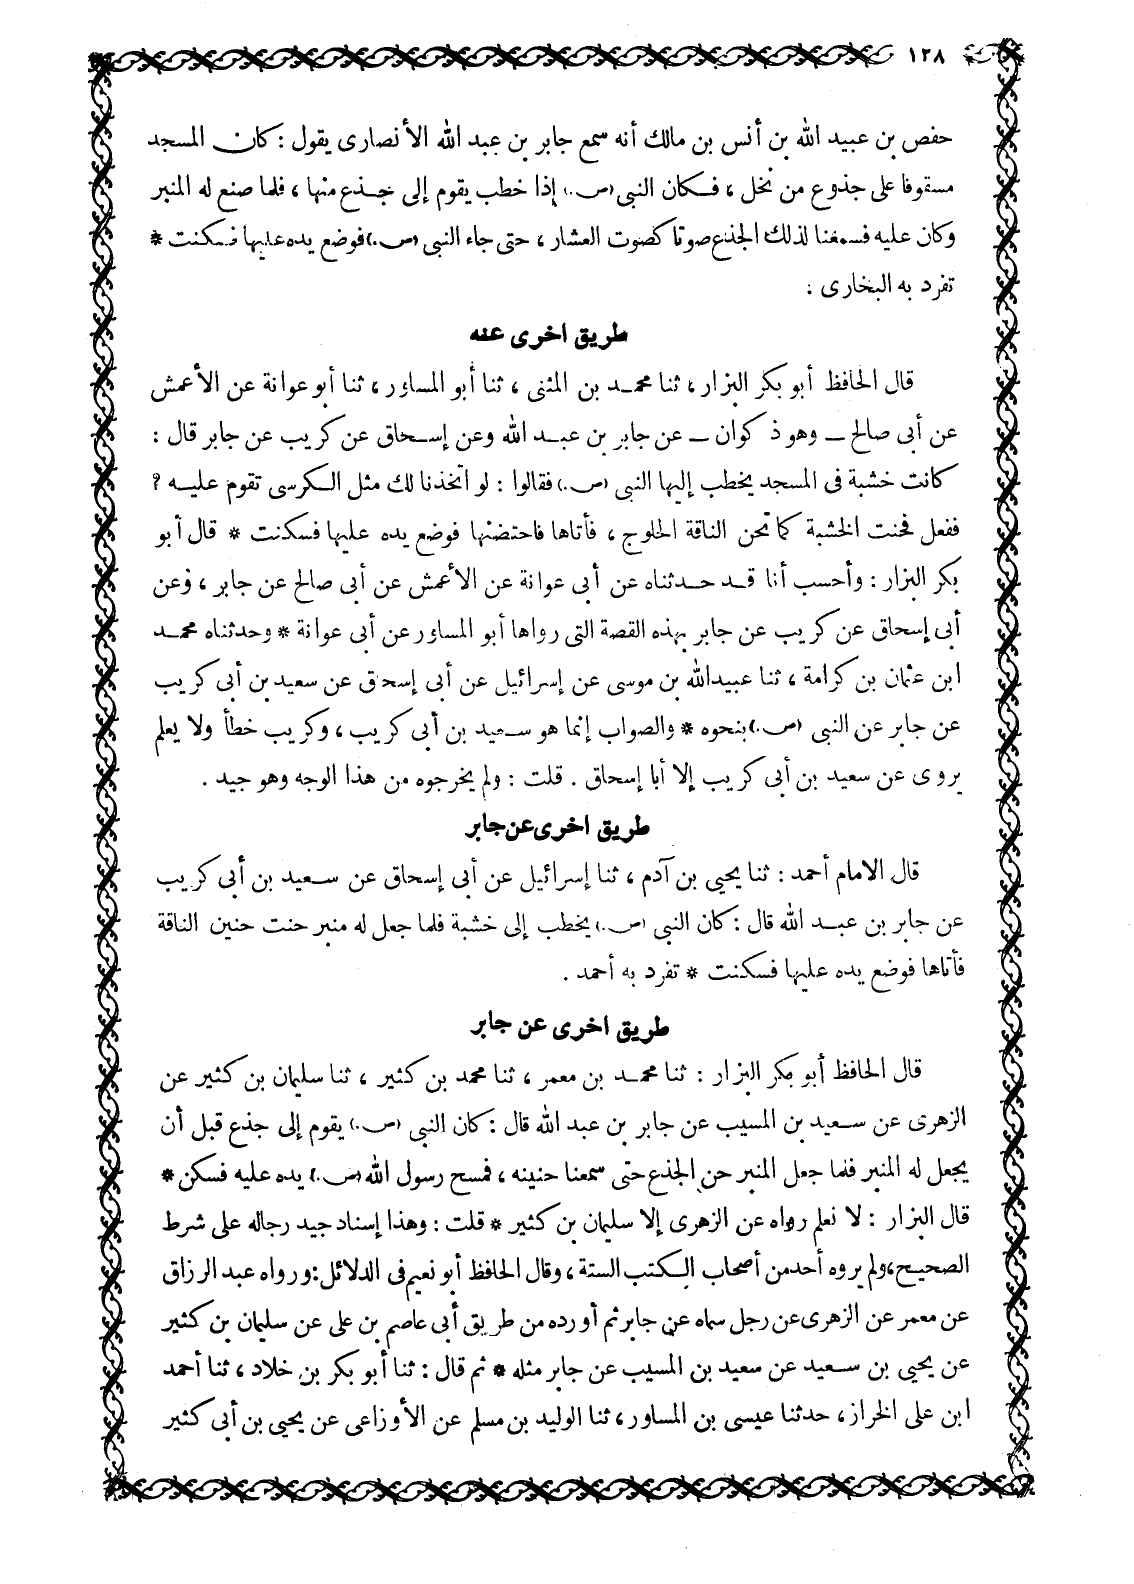 ١٢٨
حفص بن عبيد الله بن أنس بن مالك أنه سمع جابر بن عبد الله الأنصارى يقول : كان المسجد
مسقوفا على جذوع من نخل ، فكان النبى (ص.) إذا خطب يقوم إلى جذع منها ، فلما صنع له المنبر
وكان عليه فسمعنا لذلك الجذع صوتا كصوت العشار ، حتى جاء النبى (ص.) فوضع يده عليها فسكنت *
تفرد به البخارى .
طريق اخرى عنه
قال الحافظ أبو بكر البزار ، ثنا محمد بن المثنى ، ثنا أبو المساور ، ثنا أبو عوانة عن الأعمش
عن أبى صالح ــ وهو ذكوان ــ عن جابر بن عبد الله وعن إسحاق عن كريب عن جابر قال :
كانت خشبة فى المسجد يخطب إليها النبى (ص.) فقالوا : لو اتخذنا لك مثل الكرسى تقوم عليه ؟
ففعل فحنت الخشبة كما تحن الناقة الحلوج ، فأتاها فاحتضنها فوضع يده عليها فسكنت * قال أبو
بكر البزار : وأحسب أنا قد حدثناه عن أبى عوانة عن الأعمش عن أبى صالح عن جابر ، وعن
أبى إسحاق عن كريب عن جابر بهذه القصة التى رواها أبو المساور عن أبى عوانة * وحدثناه محمد
ابن عثمان بن كرامة ، ثنا عبيدالله بن موسى عن إسرائيل عن أبى إسحاق عن سعيد بن أبى كريب
عن جابر عن النبى (ص.) بنحوه * والصواب إنما هو سعيد بن أبى كريب ، وكريب خطأ ولا يعلم
يروى عن سعيد بن أبى كريب إلا أبا إسحاق . قلت : ولم يخرجوه من هذا الوجه وهو جيد .
طريق اخرى عن جابر
قال الامام أحمد : ثنا يحيى بن آدم ، ثنا إسرائيل عن أبى إسحاق عن سعيد بن أبى كريب
عن جابر بن عبد الله قال : كان النبى (ص.) يخطب إلى خشبة فلما جعل له منبر حنت حنين الناقة
فأتاها فوضع يده عليها فسكنت * تفرد به أحمد .
طريق اخرى عن جابر
قال الحافظ أبو بكر البزار : ثنا محمد بن معمر ، ثنا محمد بن كثير ، ثنا سليمان بن كثير عن
الزهرى عن سعيد بن المسيب عن جابر بن عبد الله قال : كان النبى (ص.) يقوم إلى جذع قبل أن
يجعل له المنبر فلما جعل المنبر حن الجذع حتى سمعنا حنينه ، فمسح رسول الله (ص.) يده عليه فسكن *
قال البزار : لا نعلم رواه عن الزهرى إلا سليمان بن كثير * قلت : وهذا إسناد جيد رجاله على شرط
الصحيح ، ولم يروه أحد من أصحاب الكتب الستة ، وقال الحافظ أبو نعيم فى الدلائل : ورواه عبد الرزاق
عن معمر عن الزهرى عن رجل سماه عن جابر ثم أورده من طريق أبى عاصم بن على عن سليمان بن كثير
عن يحيى بن سعيد عن سعيد بن المسيب عن جابر مثله * ثم قال : ثنا أبو بكر بن خلاد ، ثنا أحمد
ابن على الخراز ، حدثنا عيسى بن المساور ، ثنا الوليد بن مسلم عن الأوزاعى عن يحيى بن أبى كثير